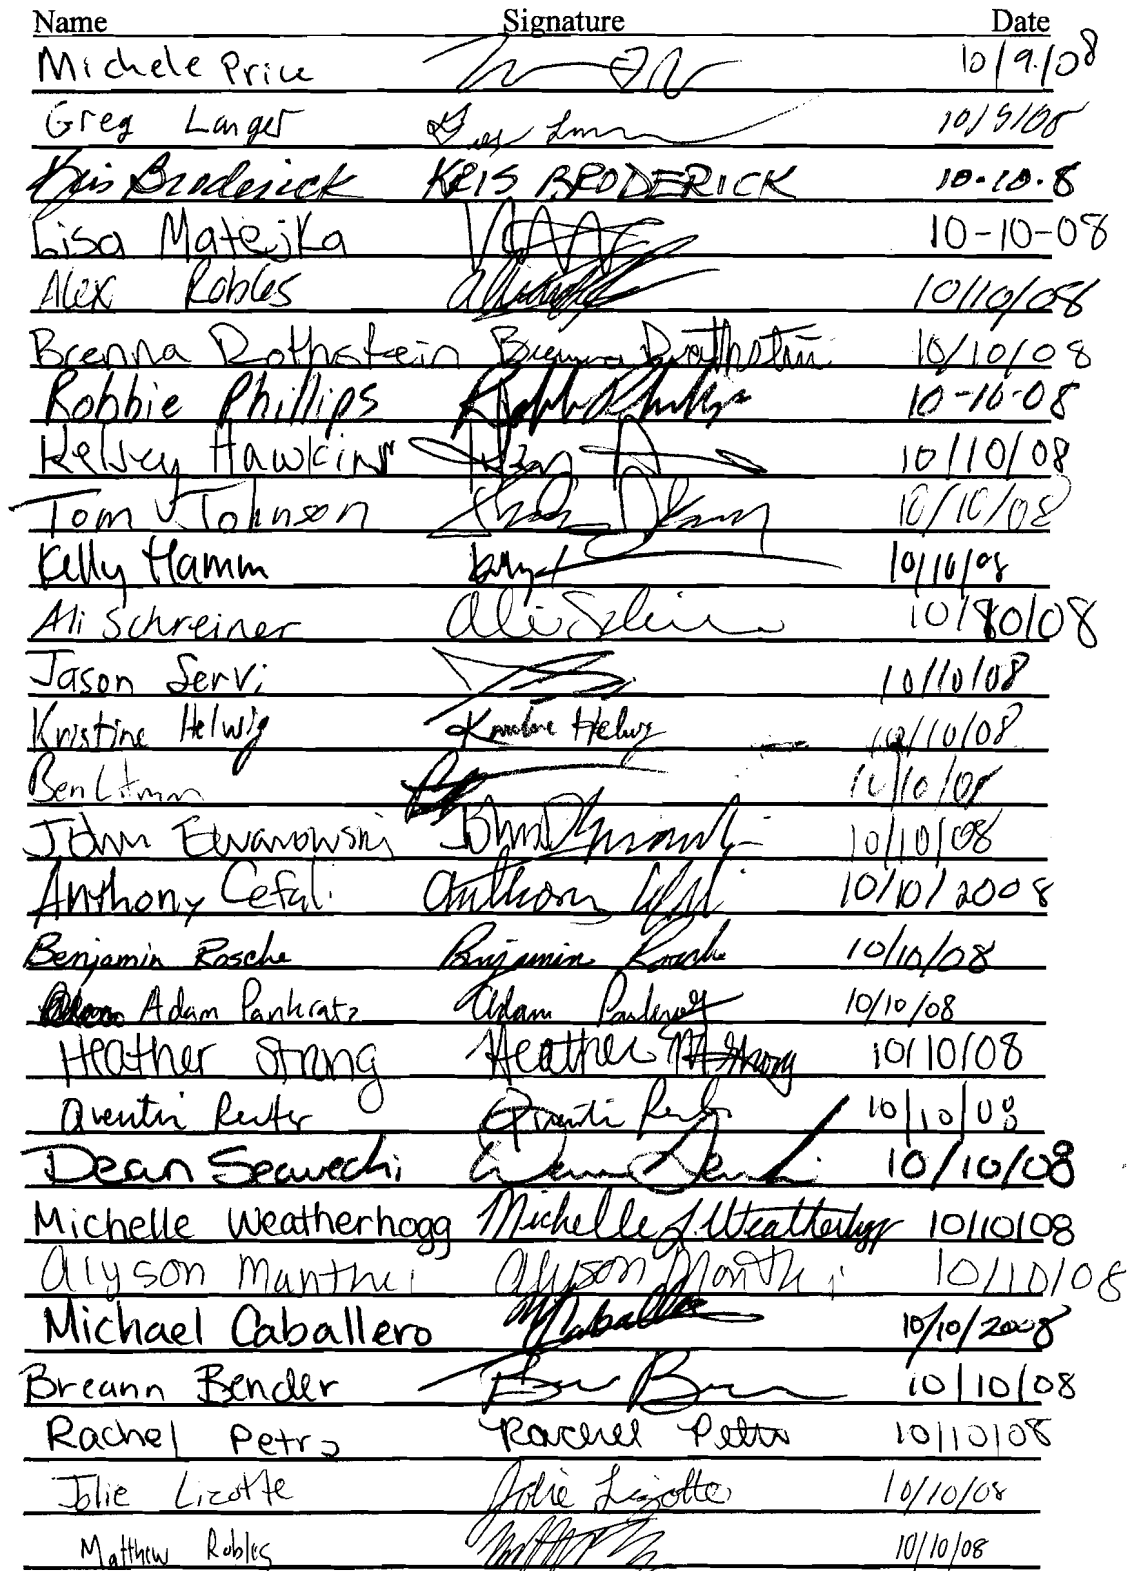 Name Signature Date
Michele Price 10/9/08
Greg Langer 10/9/08
Kris Broderick KRIS BRODERICK 10.10.8
Lisa Matejka 10-10-08
Alex Robles 10/10/08
Brenna Rothstein Brenna Rothstein 10/10/08
Robbie Phillips Robbie Phillips 10-10-08
Kelsey Hawkins 10/10/08
Tom Johnson 10/10/08
Kelly Hamm 10/10/08
Ali Schreiner Ali 10/10/08
Jason Servi 10/10/08
Kristine Helwig Kristine Helwig 10/10/08
Ben 10/10/08
John Ewanowski John 10/10/08
Anthony Cefali Anthony Cefali 10/10/2008
Benjamin Rosche Benjamin Rosche 10/10/08
Adam Pankratz Adam Pankratz 10/10/08
Heather Strong Heather M Strong 10/10/08
Quentin Reuter Quentin Reuter 10/10/08
Dean Dean 10/10/08
Michelle Weatherhogg Michelle J. Weatherhogg 10/10/08
Alyson Manthei Alyson Manthei 10/10/08
Michael Caballero MCaballero 10/10/2008
Breann Bender 10/10/08
Rachel Petro Rachel Petro 10/10/08
Jolie Lizotte Jolie Lizotte 10/10/08
Matthew Robles 10/10/08